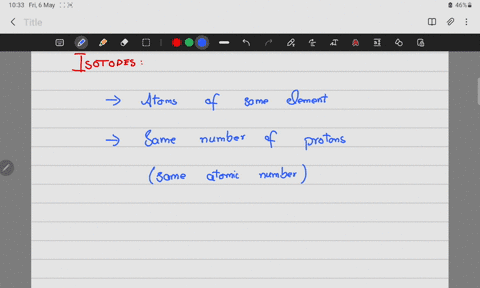 10:33 Fri, 6 May
46%
Title
ISOTOPES:
→ Atoms of same element
→ Same number of protons
(same atomic number)